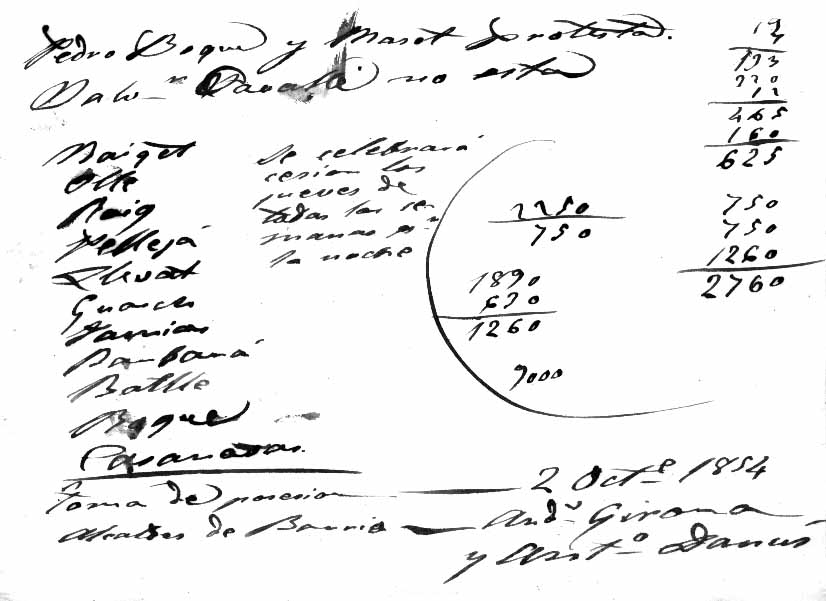 Pedro Boqué y Masot protesta.
Salv.r Pavallé no esta
Baiget
Olle
Roig
Pellejá
Llevat
Guasch
Barbará
Batlle
Boqué
Casanovas.
Se celebrará
cesion los
jueves de
todas las se-
manas p.r
la noche
2250
750
1890
630
1260
7000
465
160
625
750
750
1260
2760
Toma de posesion — 2 Oct.e 1854
Alcaldes de Barrio — And.u Girona
y Ant.o Danús